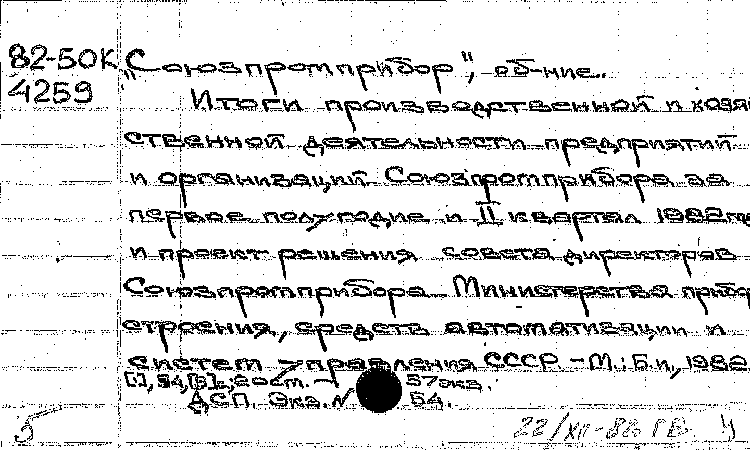 82-50К
4259
"Союзпромприбор", об-ние.
Итоги производственной и хозяй
ственной деятельности предприятий
и организаций Союзпромприбора за
первое полугодие и II квартал 1982 го
и проект решения совета директоров
Союзпромприбора Министерства прибо
строения, средств автоматизации и
систем управления СССР – М.: Б.и, 1982
[1], 54, [3] с.; 20 см. — 57 экз.
ДСП. Экз. № 54.
5 22/XII-82 ГВ. Ч